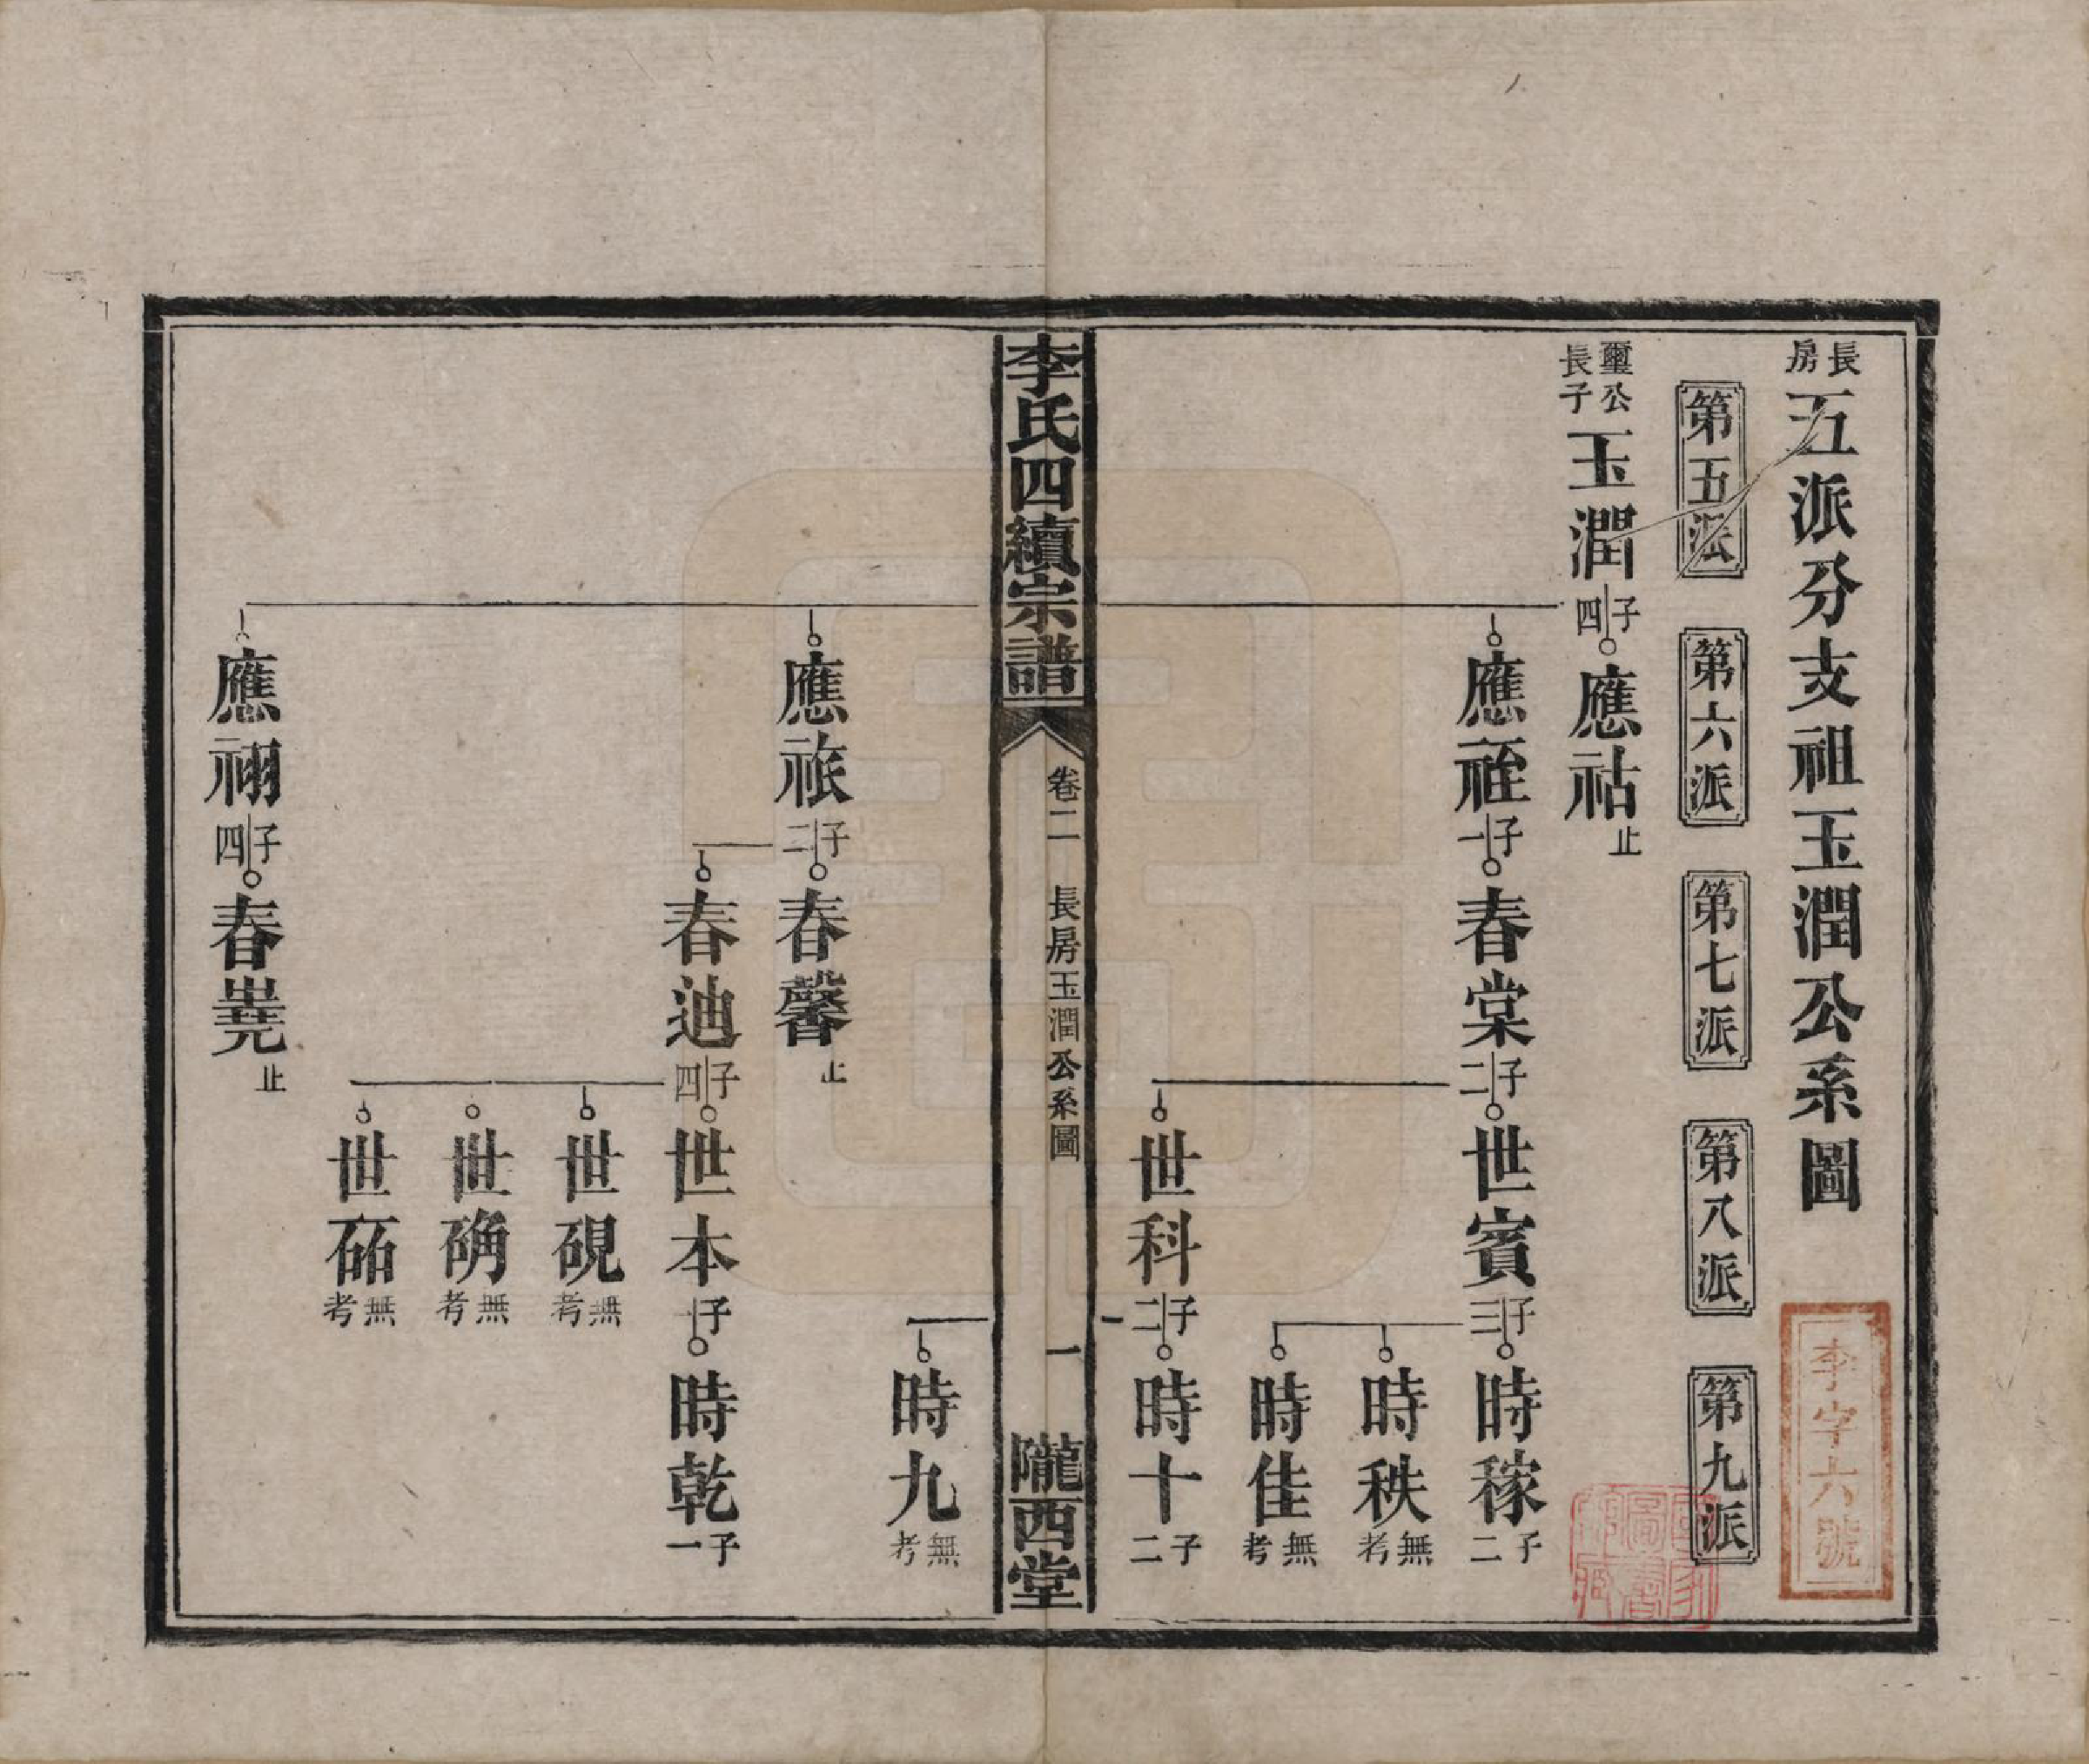 長房 五派分支祖玉潤公系圖
李字六號
第五派 第六派 第七派 第八派 第九派
璽公長子 玉潤 子四 應祜 止
應祬 子一 春棠 子二 世賓 子三 時稼 子二
時秩 無考
時佳 無考
世科 子二 時十 子二
李氏四續宗譜 卷二 長房玉潤公系圖 一 隴西堂
時九 無考
應祣 子二 春馨 止
春迪 子四 世本 子一 時乾 子一
世硯 無考
世确 無考
世 無考
應 子四 春 止